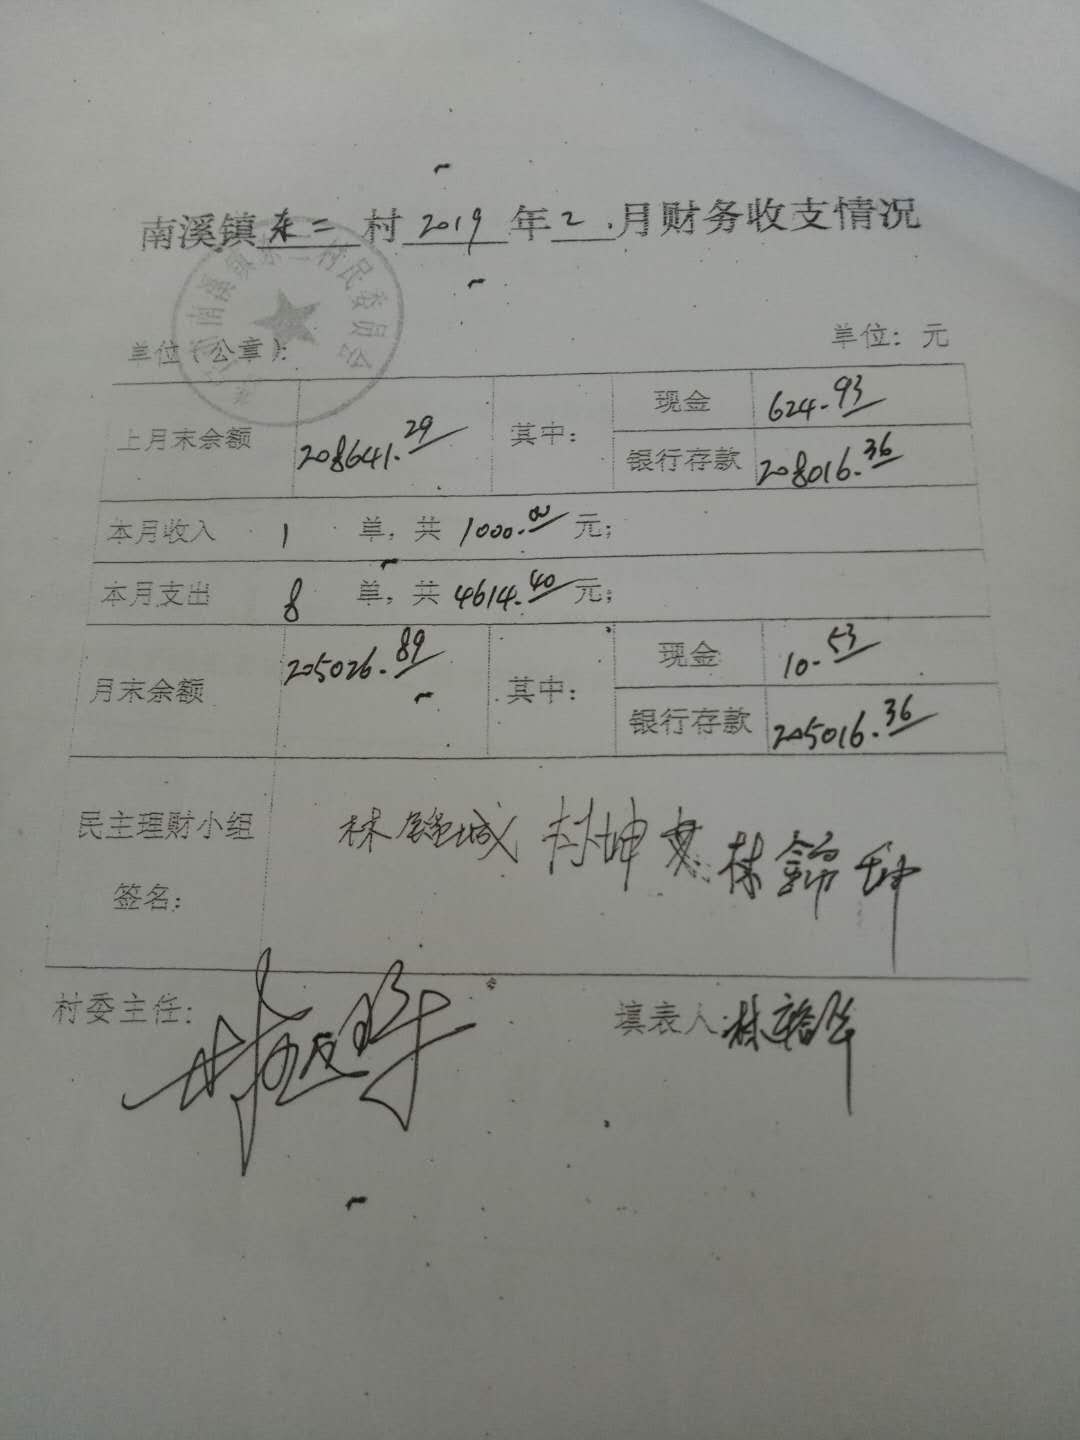 南溪镇东二村2019年2月财务收支情况
南溪镇东二村民委员会
单位（公章）： 单位：元
上月末余额 208641.29 其中： 现金 624.93
银行存款 208016.36
本月收入 1 单，共 1000.00 元；
本月支出 8 单，共 4614.40 元；
月末余额 205026.89 其中： 现金 10.53
银行存款 205016.36
民主理财小组 林 城 坤 林錦
签名：
村委主任： 填表人：林